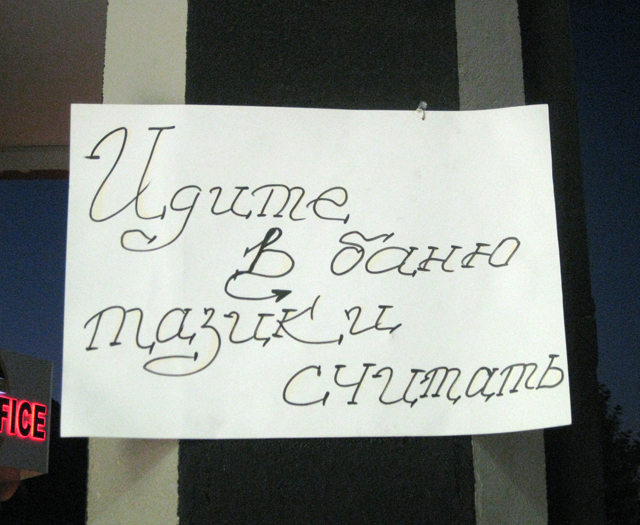 Идите
в баню
тазики
считать
FICE